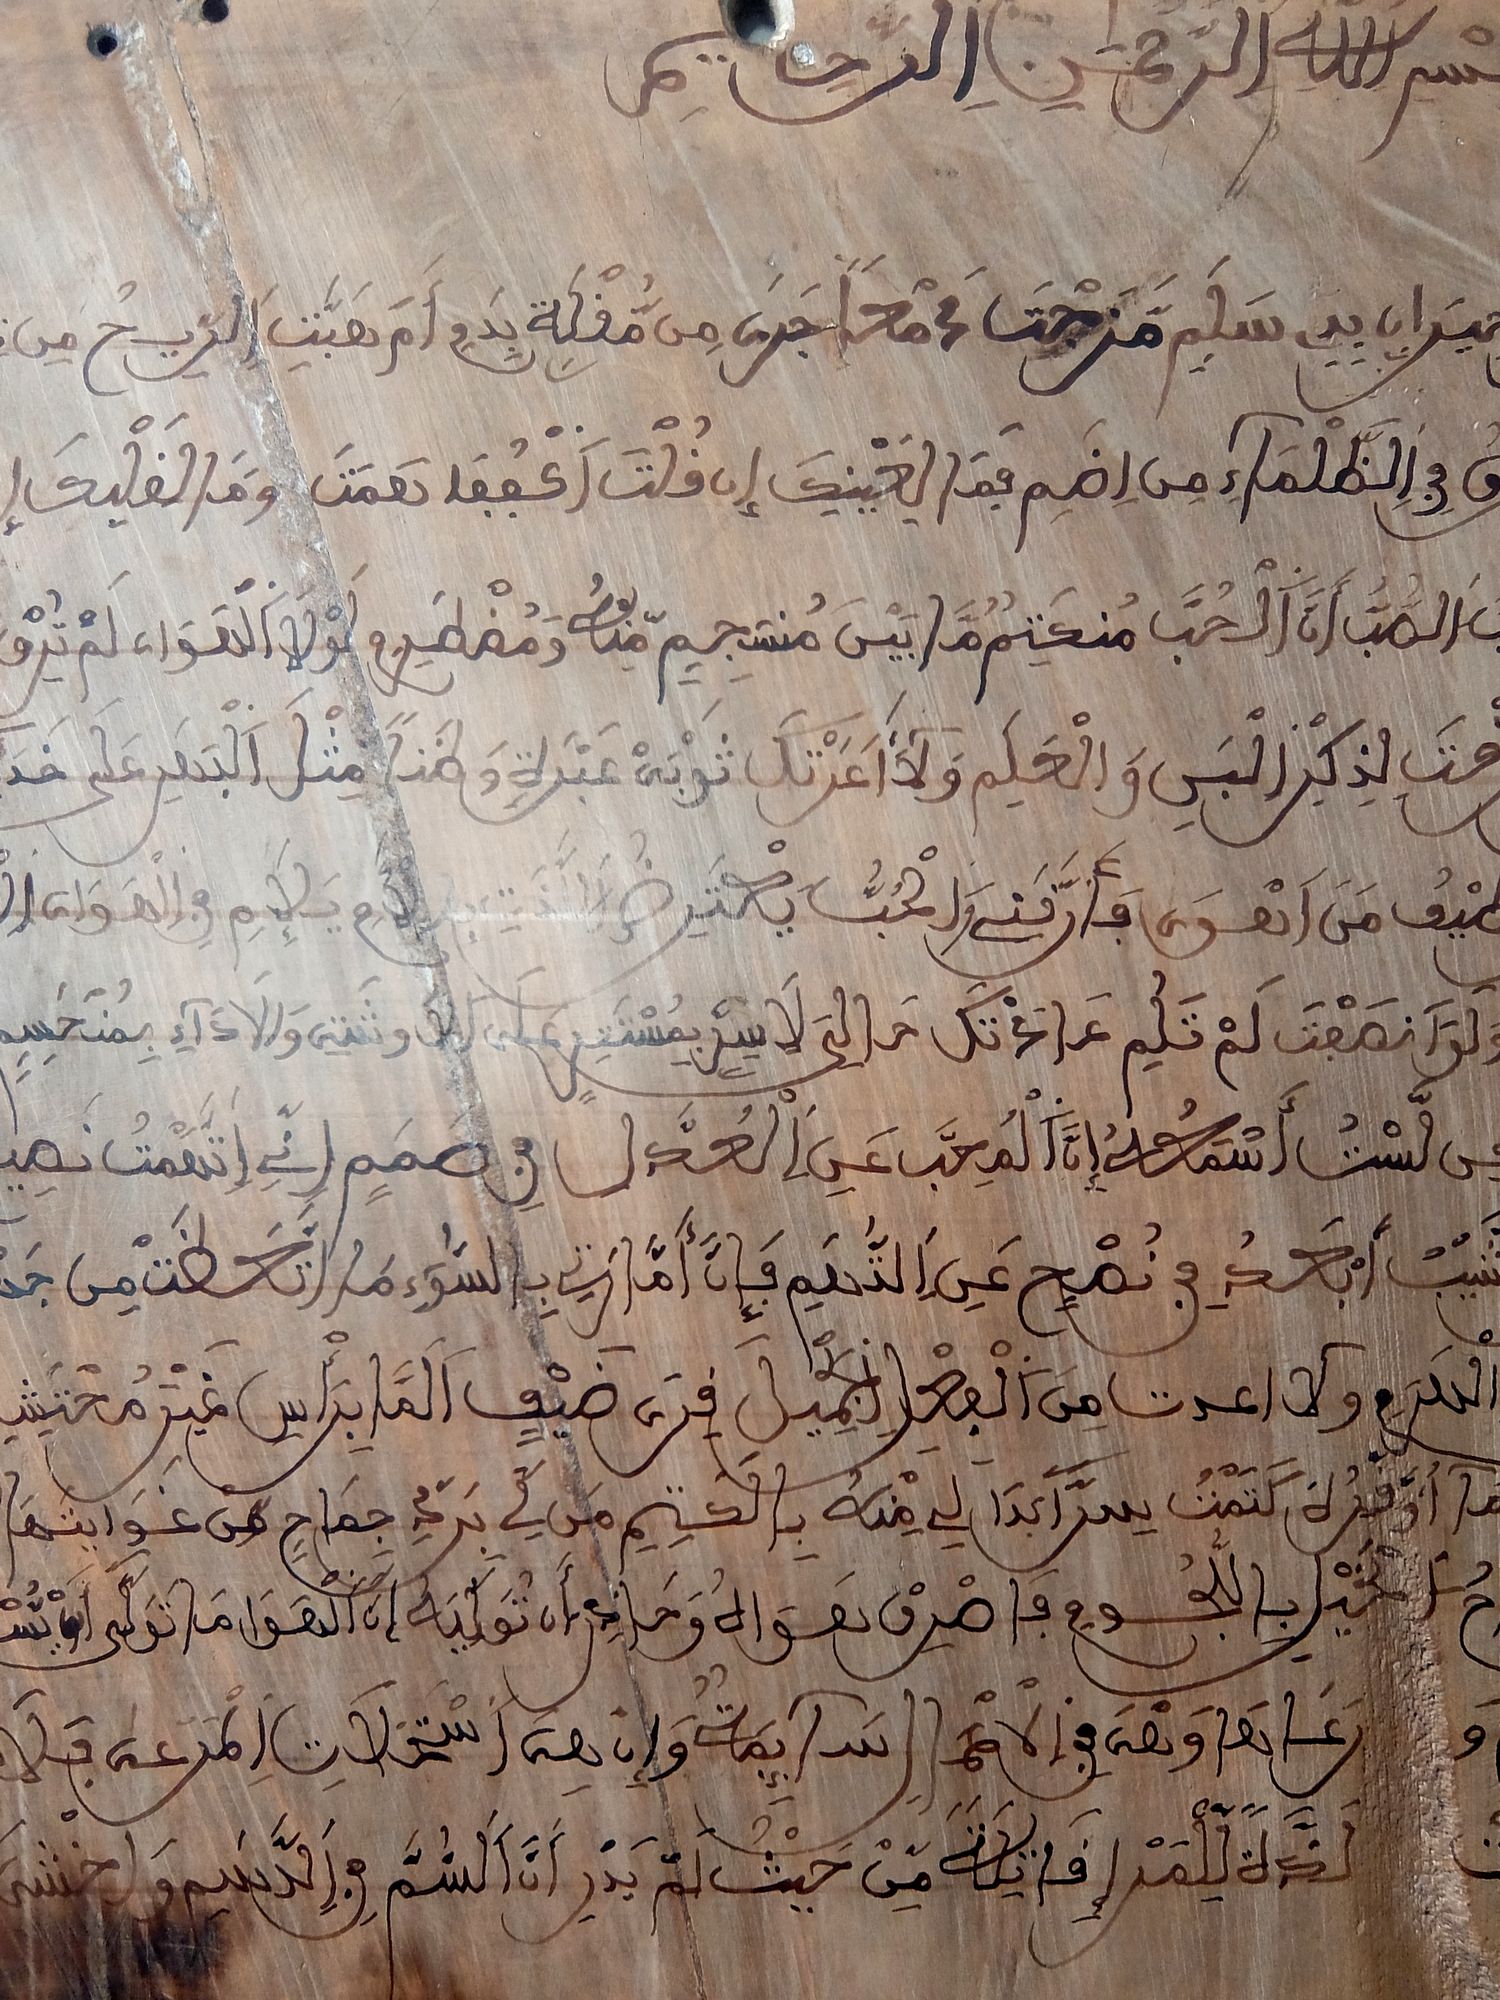 بسم الله الرحمن الرحيم
جيران بذي سلم مزجت دمعا جرى من مقلة بدم أم هبت الريح من
في الظلماء من اضم فما لعينيك إن قلت اكففا همتا وما لقلبك إ
الصب أن الحب منكتم ما بين منسجم منه ومضطرم لولا الهوا لم ترق
لذكر البس والعلم ولا أعرتك ثوبى عبرة وضنا مثل البهر على خد
طيف من اهوى فأرقني والحب يعتر ض اللذات في الهوى
ولو انصفت لم تلم عداتك حالي لا سر بمستتر على ال وشتى والا داء بمنحسم
لست أسمعه إن المحب عن العذل في صمم إني اتهمت نصي
أبعد في نصح عن التهم فإن أمارتي بالسوء ما اتعظت من جه
الهرم ولا اعدت من الفعل الجميل قرى ضيف الم برأس غير محتشم
أوقره كتمت سرا بدا لي منه بالكتم من لي برد جماح من غوايتها
الخيل باللجم فاصرف هواه وحاذر أن توليه إن الهوا ما تولى
و راعها وهي في الاعمال سائمة وإن هي استحلات المرعى فلا
لذة للمرء قاتلة من حيث لم يدر أن السم في الدسم واخش